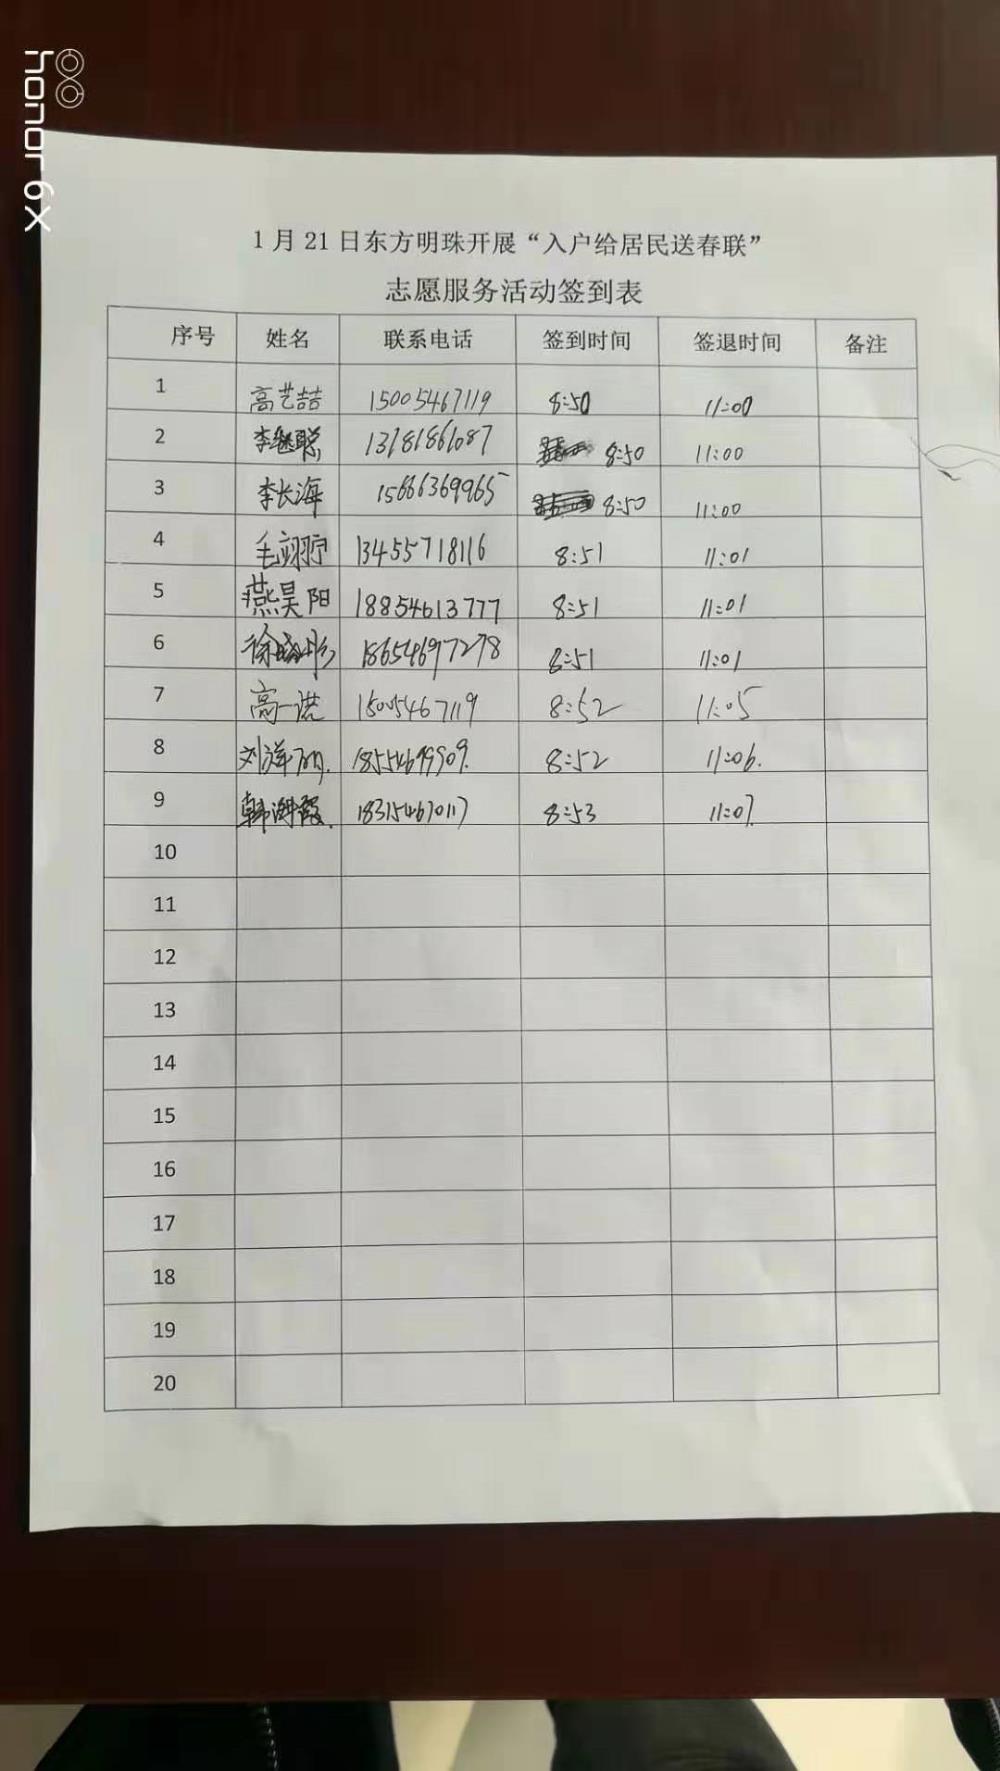 honor 6X
1月21日东方明珠开展“入户给居民送春联”
志愿服务活动签到表
序号 姓名 联系电话 签到时间 签退时间 备注
1 高艺喆 15005467119 8:50 11:00
2 李继聪 13181861087 8:50 11:00
3 李长海 15666369965 8:50 11:00
4 毛翊宁 13455718116 8:51 11:01
5 燕昊阳 18854613777 8:51 11:01
6 徐晓彤 18654697278 8:51 11:01
7 高一诺 15005467119 8:52 11:05
8 8:52 11:06.
9 183154670117 8:53 11:07.
10
11
12
13
14
15
16
17
18
19
20